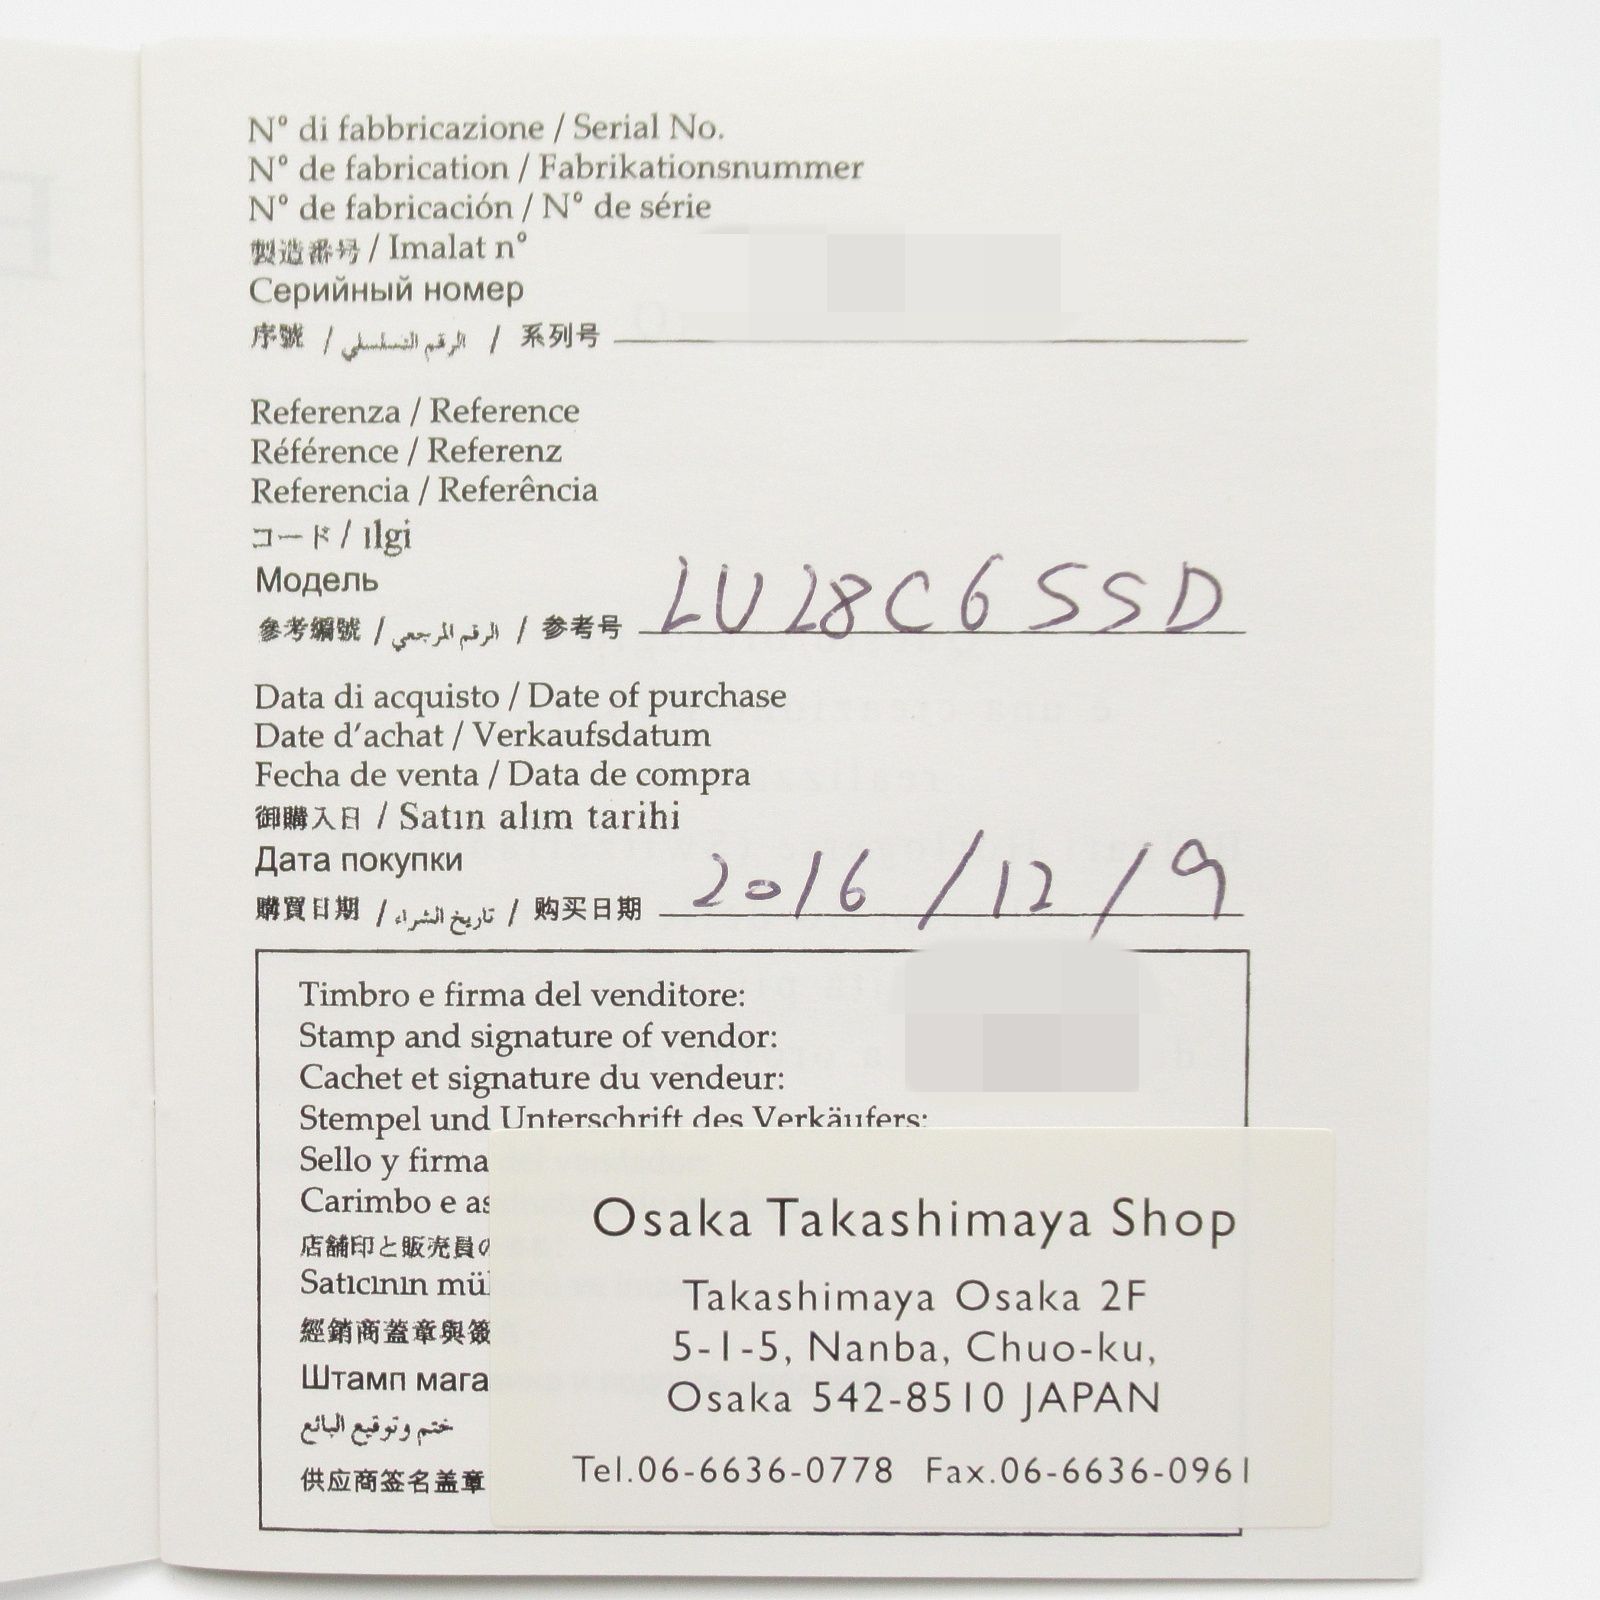 N° di fabbricazione / Serial No.
N° de fabrication / Fabrikationsnummer
N° de fabricación / N° de série
製造番号 / Imalat n°
Серийный номер
序號 / الرقم التسلسلي / 系列号
Referenza / Reference
Référence / Referenz
Referencia / Referência
コード / ılgi
Модель
參考編號 / الرقم المرجعي / 参考号 LU28C6SSD
Data di acquisto / Date of purchase
Date d'achat / Verkaufsdatum
Fecha de venta / Data de compra
御購入日 / Satın alım tarihi
Дата покупки
購買日期 / تاريخ الشراء / 购买日期 2016/12/9
Timbro e firma del venditore:
Stamp and signature of vendor:
Cachet et signature du vendeur:
Stempel und Unterschrift des Verkäufers:
Sello y firma
Carimbo e as
店舗印と販売員の
Satıcının mü
經銷商蓋章與簽
Штамп мага
ختم وتوقيع البائع
供应商签名盖章
Osaka Takashimaya Shop
Takashimaya Osaka 2F
5-1-5, Nanba, Chuo-ku,
Osaka 542-8510 JAPAN
Tel.06-6636-0778 Fax.06-6636-0961